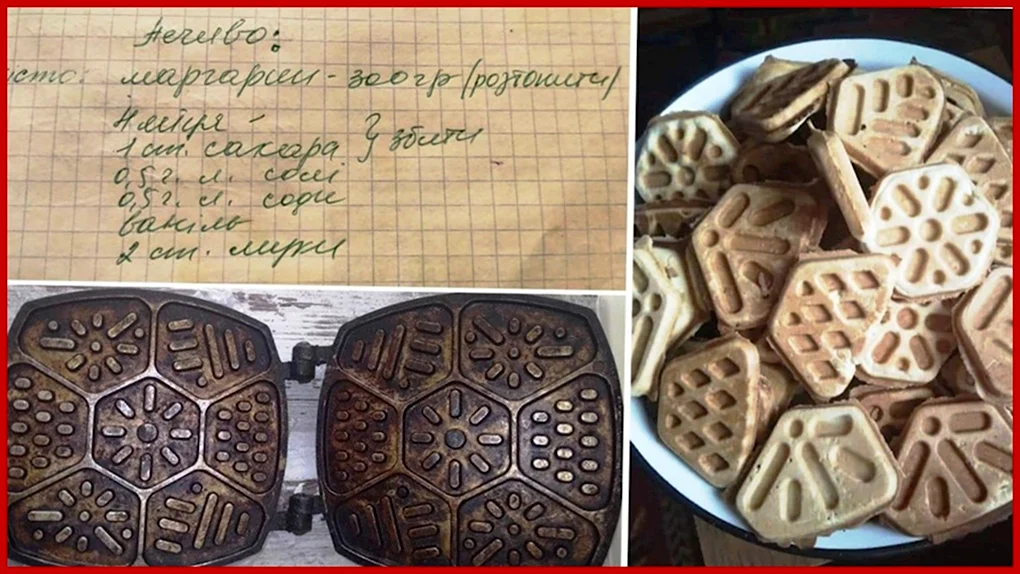 Печиво:
істо: маргарин - 300гр (розтопити)
4 яйця -
1 ст. сахара } збити
0,5 г. л. солі
0,5 г. л. соди
ваніль
2 ст. муки